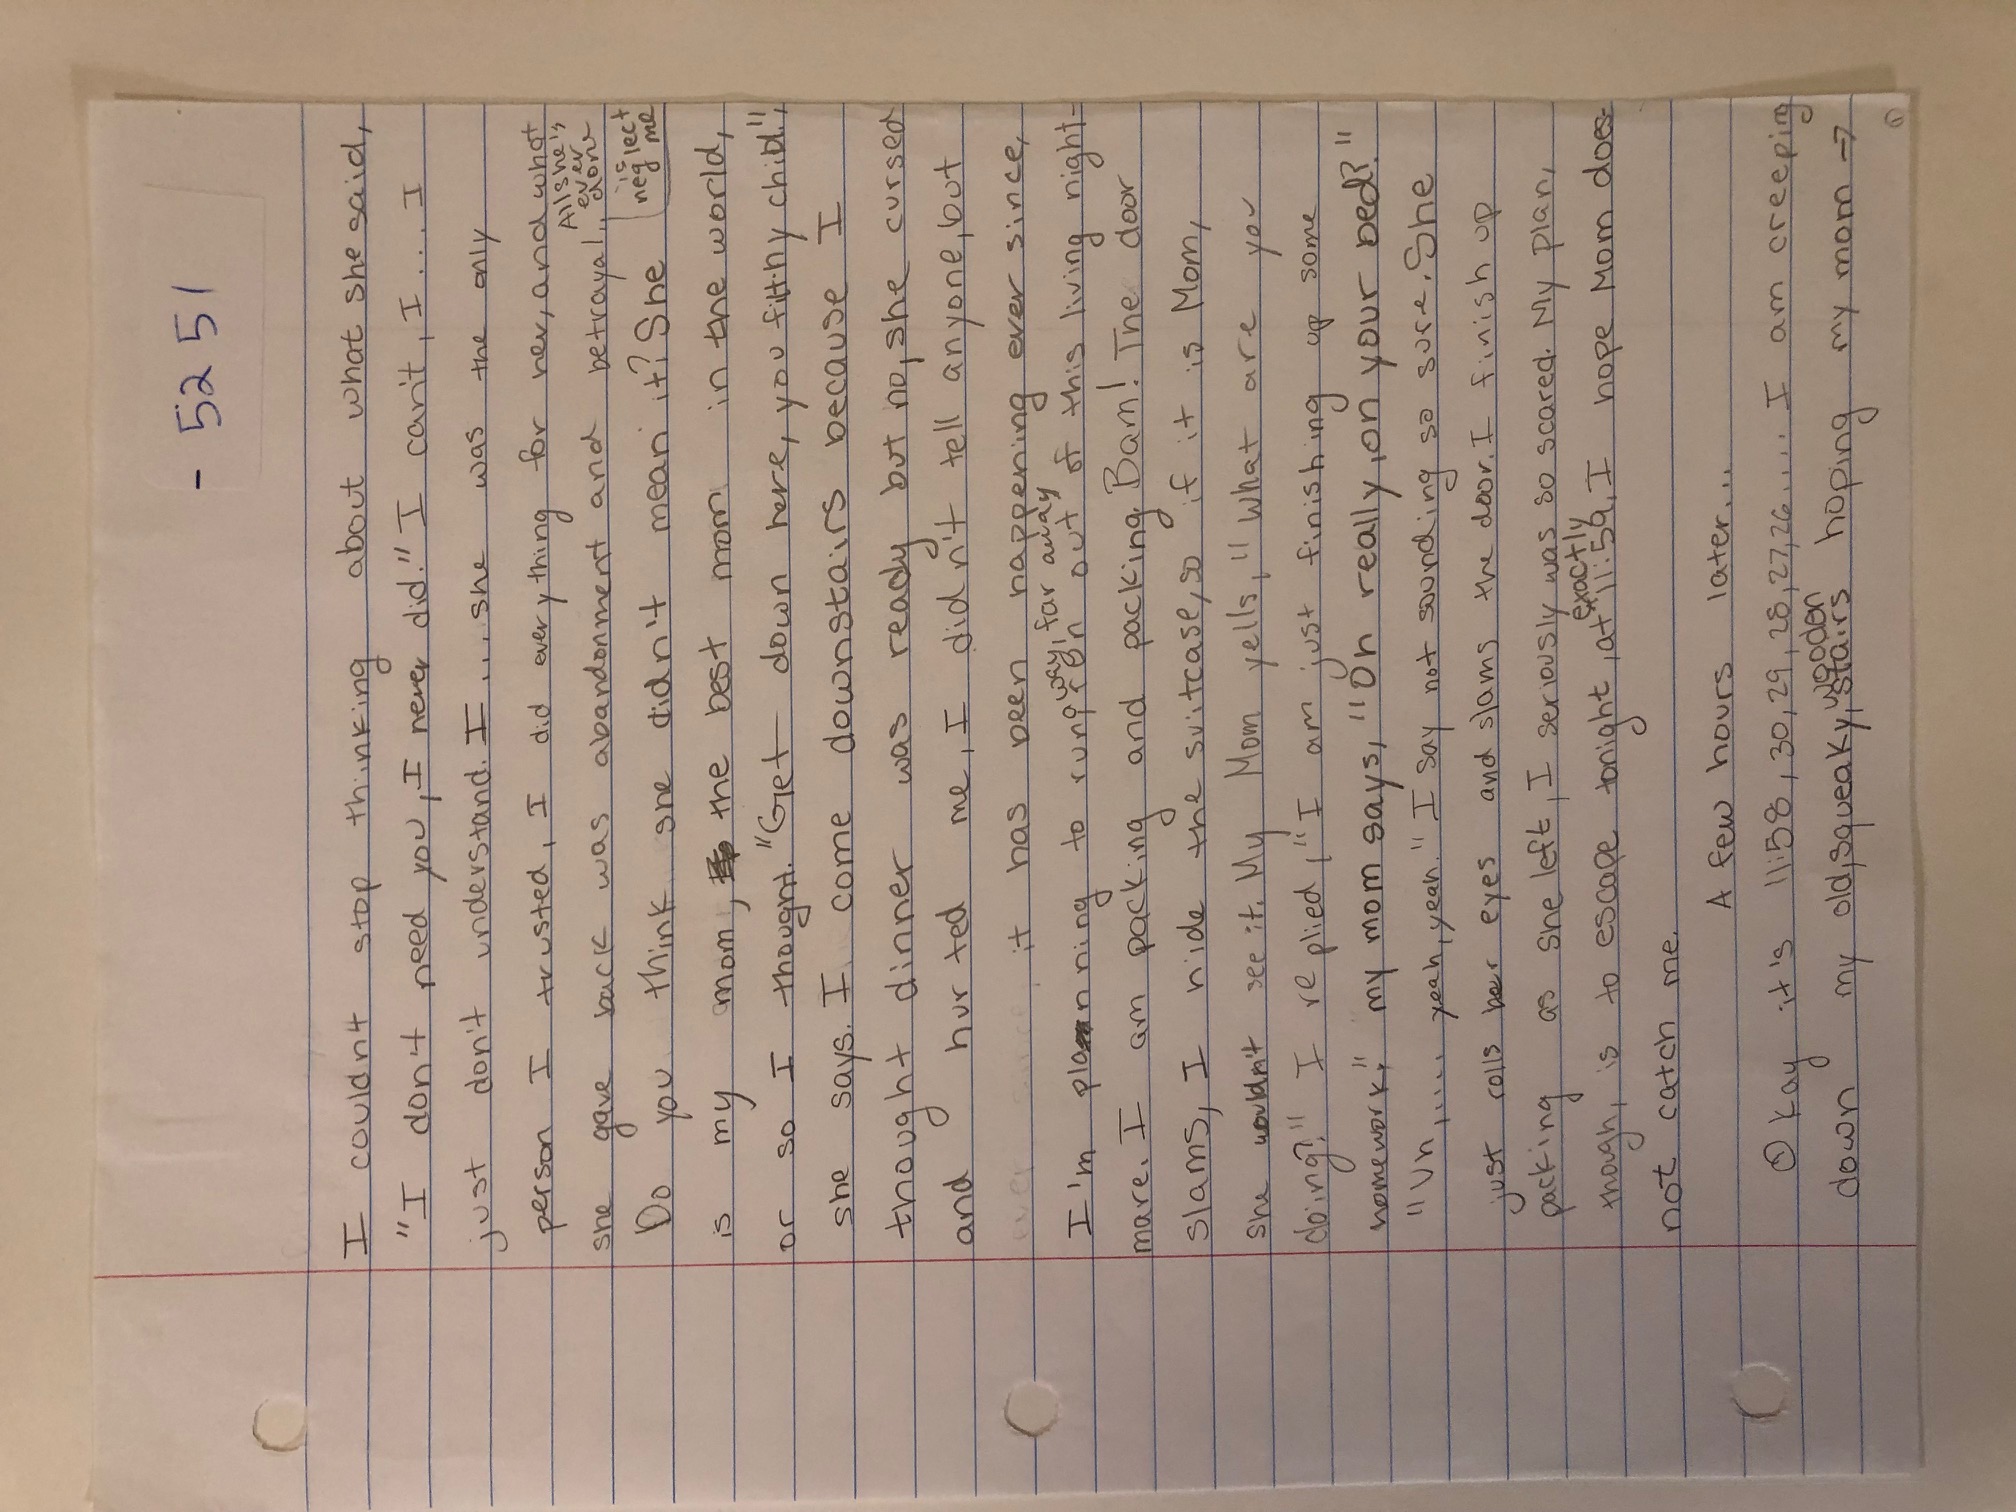 - 5251
I couldn't stop thinking about what she said,
"I don't need you, I never did." I can't, I ... I
just don't understand. I ... she was the only
person I trusted, I did everything for her, and what
she gave back was abandonment and betrayal. All she's ever done is neglect me
Do you think she didn't mean it? She
is my mom, the best mom in the world,
or so I thought. "Get down here, you filthy child!",
she says. I come downstairs because I
thought dinner was ready but no, she cursed
and hurted me, I didn't tell anyone, but
it has been happening ever since,
I'm planning to run away, far away out of this living night-
mare. I am packing and packing. Bam! The door
slams, I hide the suitcase, so if it is Mom,
she wouldn't see it. My Mom yells, "What are you
doing?" I replied, "I am just finishing up some
homework." my mom says, "Oh really, on your bed?"
"Uh, ..... yeah, yeah." I say not sounding so sure. She
just rolls her eyes and slams the door. I finish up
packing as she left, I seriously was so scared. My plan,
though, is to escape tonight, at exactly 11:59. I hope Mom does-
not catch me.
A few hours later...
Okay it's 11:58, 30, 29, 28, 27, 26 .... I am creeping
down my old, squeaky, wooden stairs hoping my mom →
①